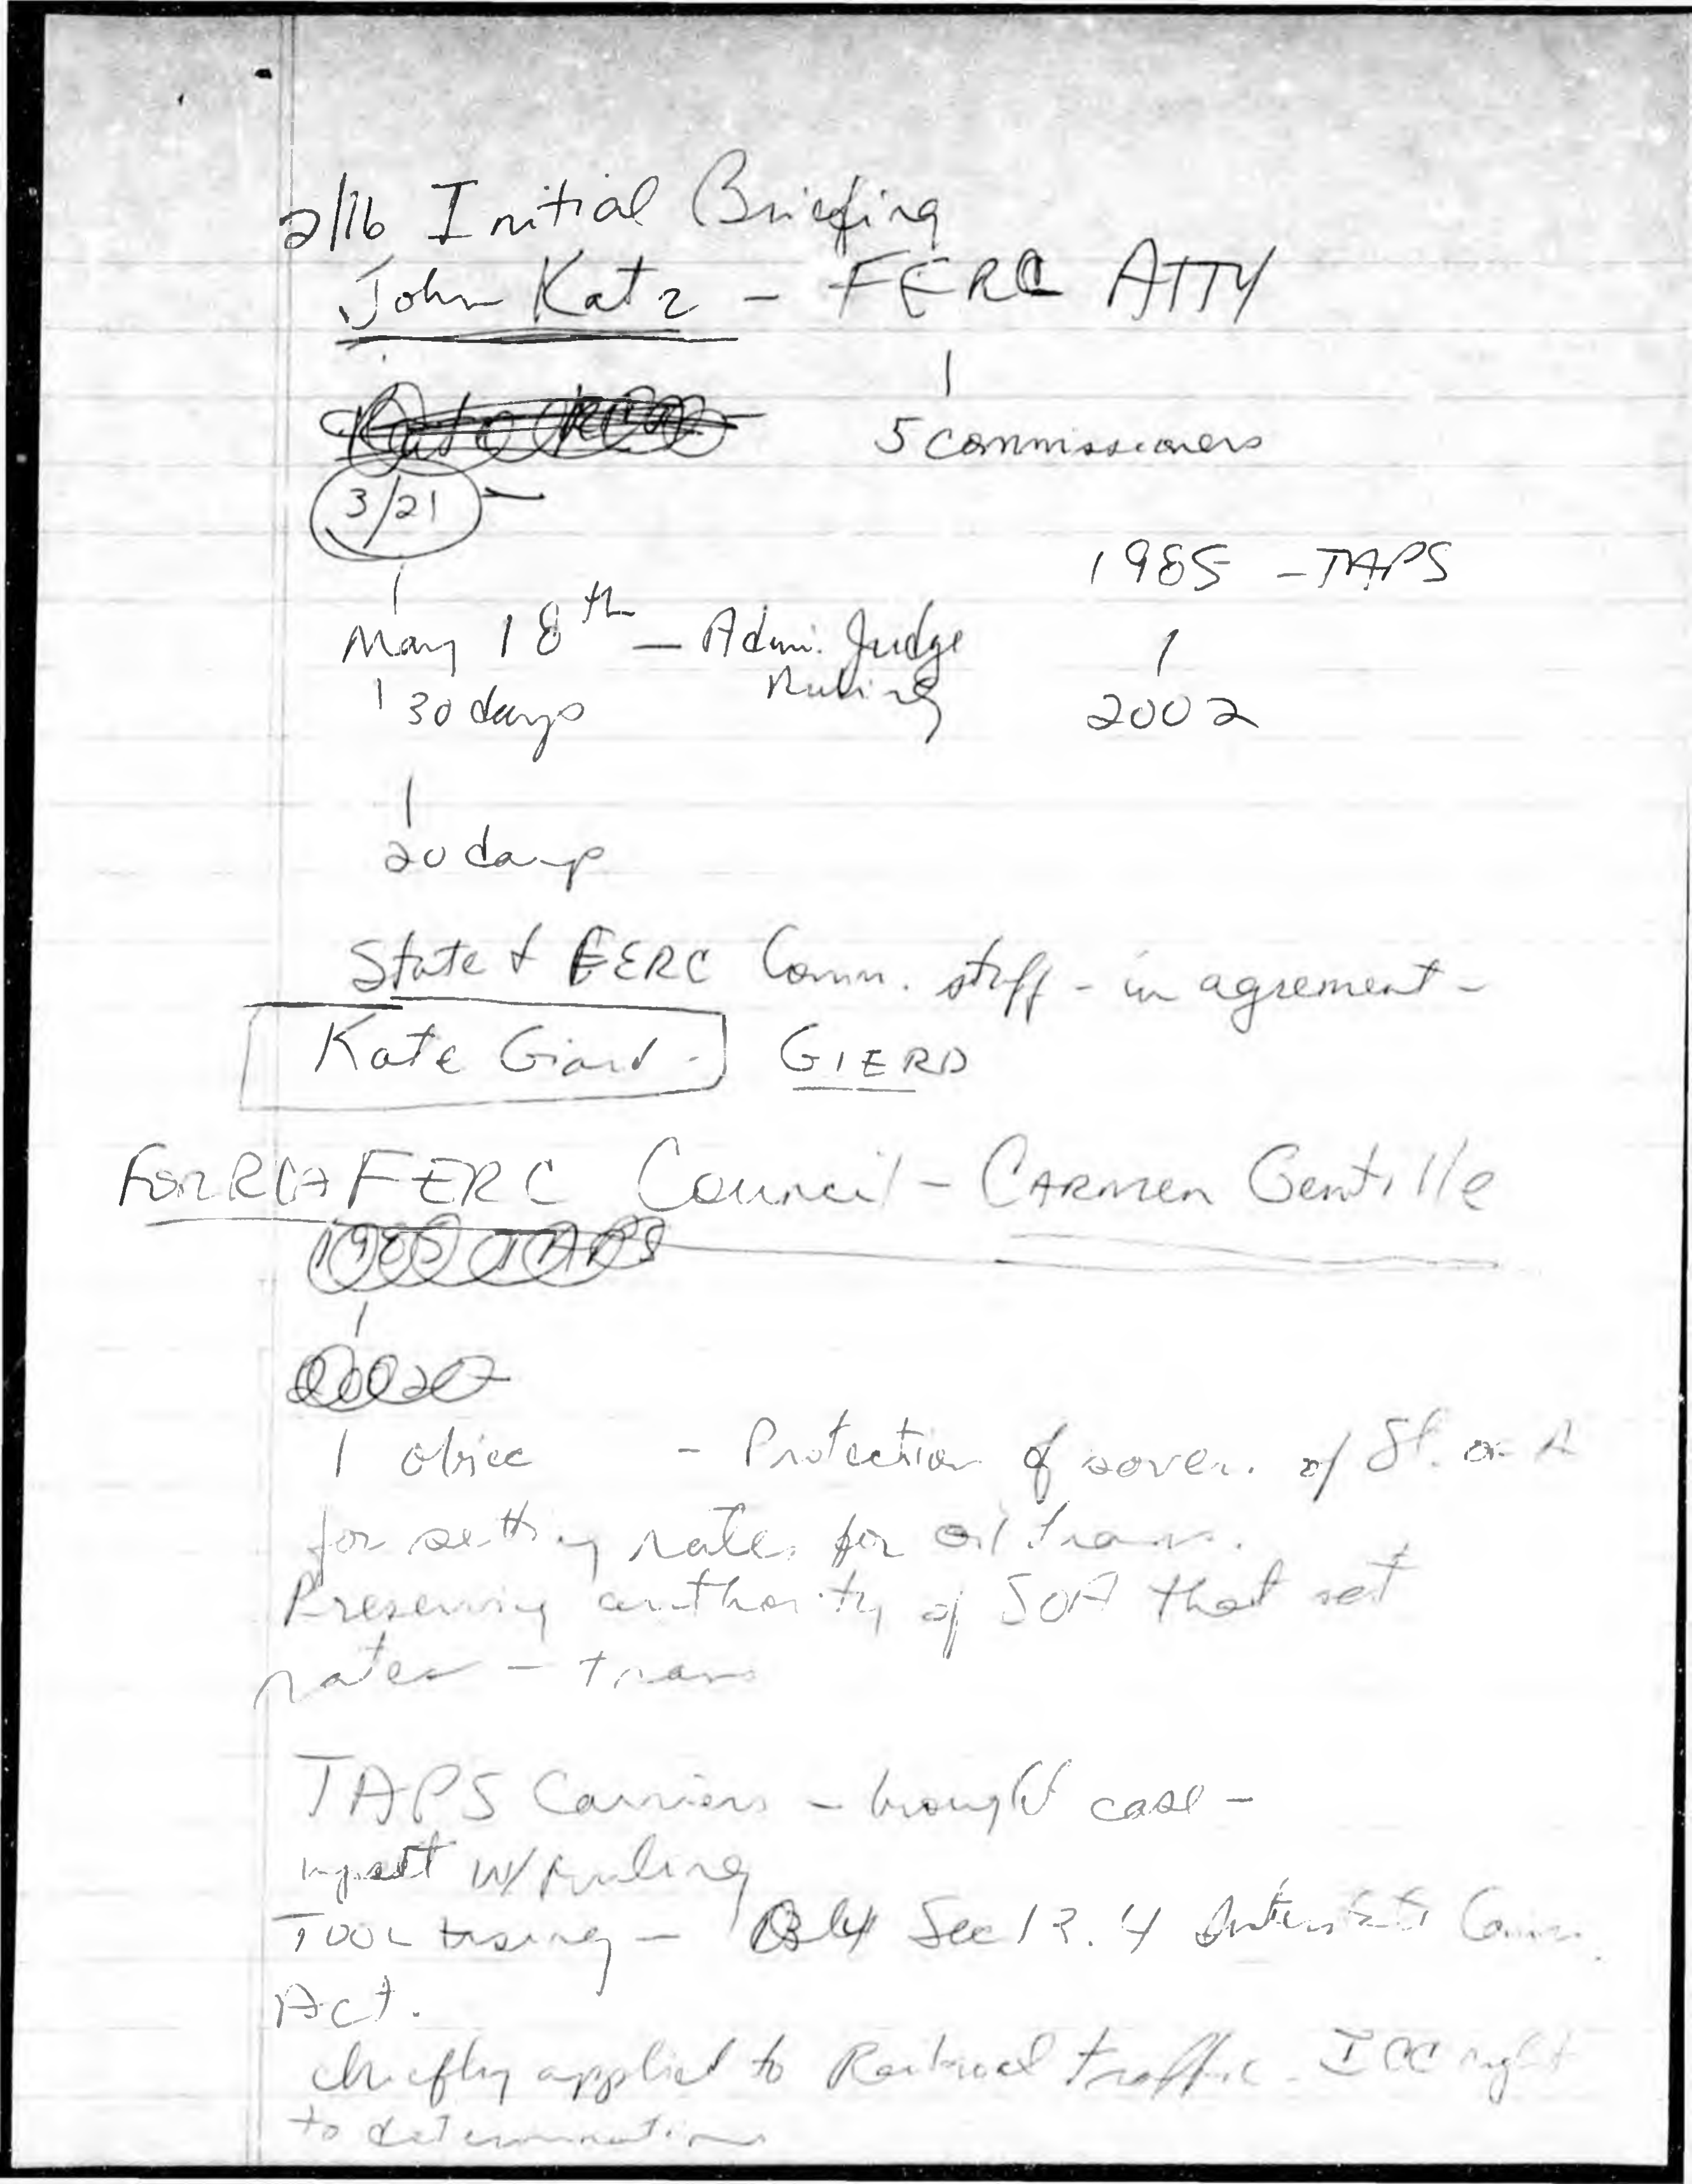 2/16 Initial Briefing
John Katz - FERC ATTY
5 commissioners
3/21 -
1985 - TAPS
May 18th - Admi. Judge
Ruling
30 days
2002
20 days
State & FERC Comm. staff - in agrement -
Kate Giard - GIERD
For RCA FERC Council - CARMEN Gentille
1985 TAPS
2002
1 objec - Protection of sover. of St. of A
for setting rates for oil trans.
Preserving authority of SOA that set
rates - trans
TAPS Carriers - brought case -
upset w/ ruling
TOOL using - Sec 13.4 Interstate Comm.
Act.
chiefly applied to Railroad traffic - ICC right
to determination